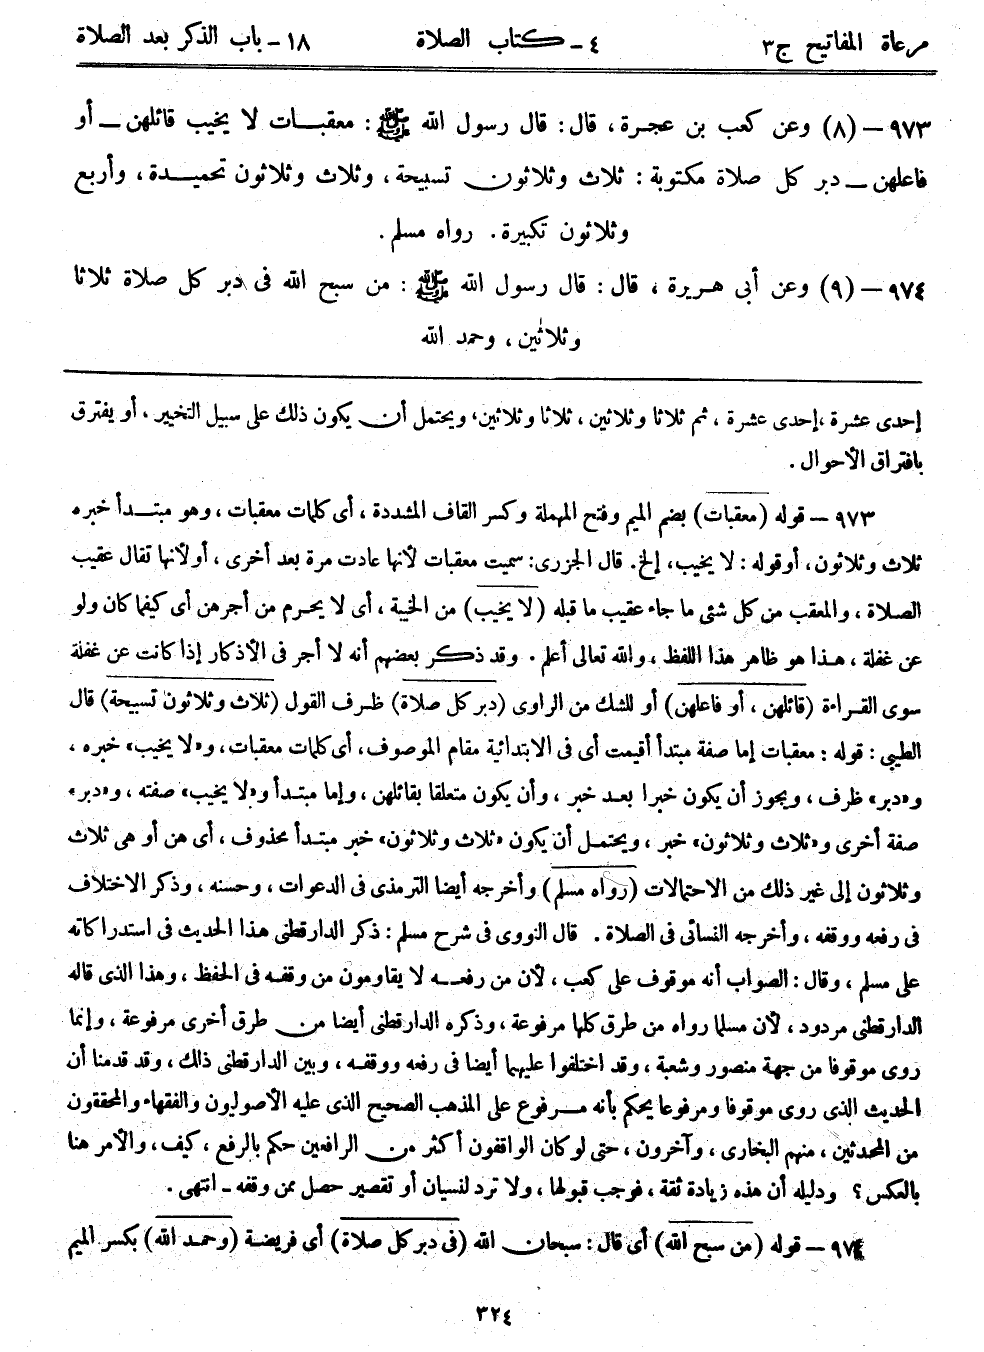 مرعاة المفاتيح ج٣
٤ - كتاب الصلاة
١٨ - باب الذكر بعد الصلاة
٩٧٣ – (٨) وعن كعب بن عجرة، قال: قال رسول الله ﷺ: معقبات لا يخيب قائلهن – أو
فاعلهن – دبر كل صلاة مكتوبة: ثلاث وثلاثون تسبيحة، وثلاث وثلاثون تحميدة، وأربع
وثلاثون تكبيرة. رواه مسلم.
٩٧٤ – (٩) وعن أبى هريرة، قال: قال رسول الله ﷺ: من سبح الله فى دبر كل صلاة ثلاثا
وثلاثين، وحمد الله
إحدى عشرة، إحدى عشرة، ثم ثلاثا وثلاثين، ثلاثا وثلاثين، ويحتمل أن يكون ذلك على سبيل التخيير، أو يفترق
بافتراق الأحوال.
٩٧٣ – قوله (معقبات) بضم الميم وفتح المهملة وكسر القاف المشددة، أى كلمات معقبات، وهو مبتدأ خبره
ثلاث وثلاثون، أو قوله: لا يخيب، إلخ. قال الجزرى: سميت معقبات لأنها عادت مرة بعد أخرى، أو لأنها تقال عقيب
الصلاة، والمعقب من كل شئ ما جاء عقيب ما قبله (لا يخيب) من الخيبة، أى لا يحرم من أجرهن أى كيفما كان ولو
عن غفلة، هذا هو ظاهر هذا اللفظ، والله تعالى أعلم. وقد ذكر بعضهم أنه لا أجر فى الأذكار إذا كانت عن غفلة
سوى القراءة (قائلهن، أو فاعلهن) أو للشك من الراوى (دبر كل صلاة) ظرف القول (ثلاث وثلاثون تسبيحة) قال
الطيبى: قوله: معقبات إما صفة مبتدأ أقيمت أى فى الابتدائية مقام الموصوف، أى كلمات معقبات، و«لا يخيب» خبره،
و«دبر» ظرف، ويجوز أن يكون خبرا بعد خبر، وأن يكون متعلقا بقائلهن، وإما مبتدأ و«لا يخيب» صفته، و«دبر»
صفة أخرى و«ثلاث وثلاثون» خبر، ويحتمل أن يكون «ثلاث وثلاثون» خبر مبتدأ محذوف، أى هن أو هى ثلاث
وثلاثون إلى غير ذلك من الاحتمالات (رواه مسلم) وأخرجه أيضا الترمذى فى الدعوات، وحسنه، وذكر الاختلاف
فى رفعه ووقفه، وأخرجه النسائى فى الصلاة. قال النووى فى شرح مسلم: ذكر الدارقطنى هذا الحديث فى استدراكاته
على مسلم، وقال: الصواب أنه موقوف على كعب، لأن من رفعه لا يقاومون من وقفه فى الحفظ، وهذا الذى قاله
الدارقطنى مردود، لأن مسلما رواه من طرق كلها مرفوعة، وذكره الدارقطنى أيضا من طرق أخرى مرفوعة، وإنما
روى موقوفا من جهة منصور وشعبة، وقد اختلفوا عليهما أيضا فى رفعه ووقفه، وبين الدارقطنى ذلك، وقد قدمنا أن
الحديث الذى روى موقوفا ومرفوعا يحكم بأنه مرفوع على المذهب الصحيح الذى عليه الأصوليون والفقهاء والمحققون
من المحدثين، منهم البخارى، وآخرون، حتى لو كان الواقفون أكثر من الرافعين حكم بالرفع، كيف، والأمر هنا
بالعكس؟ ودليله أن هذه زيادة ثقة، فوجب قبولها، ولا ترد لنسيان أو تقصير حصل بمن وقفه - انتهى.
٩٧٤ – قوله (من سبح الله) أى قال: سبحان الله (فى دبر كل صلاة) أى فريضة (وحمد الله) بكسر الميم
٣٢٤